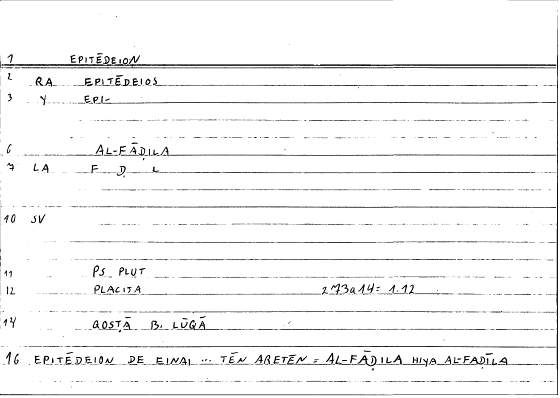 1 EPITĒDEION
2 RA EPITĒDEIOS
3 Y EPI-
6 AL-FĀḌILA
7 LA F Ḍ L
10 SV
11 PS PLUT
12 PLACITA 273a14 = 1.12
14 QOSṬĀ B. LŪQĀ
16 EPITĒDEION DE EINAI ... TĒN ARETĒN = AL-FĀḌILA HIYA AL-FAḌĪLA